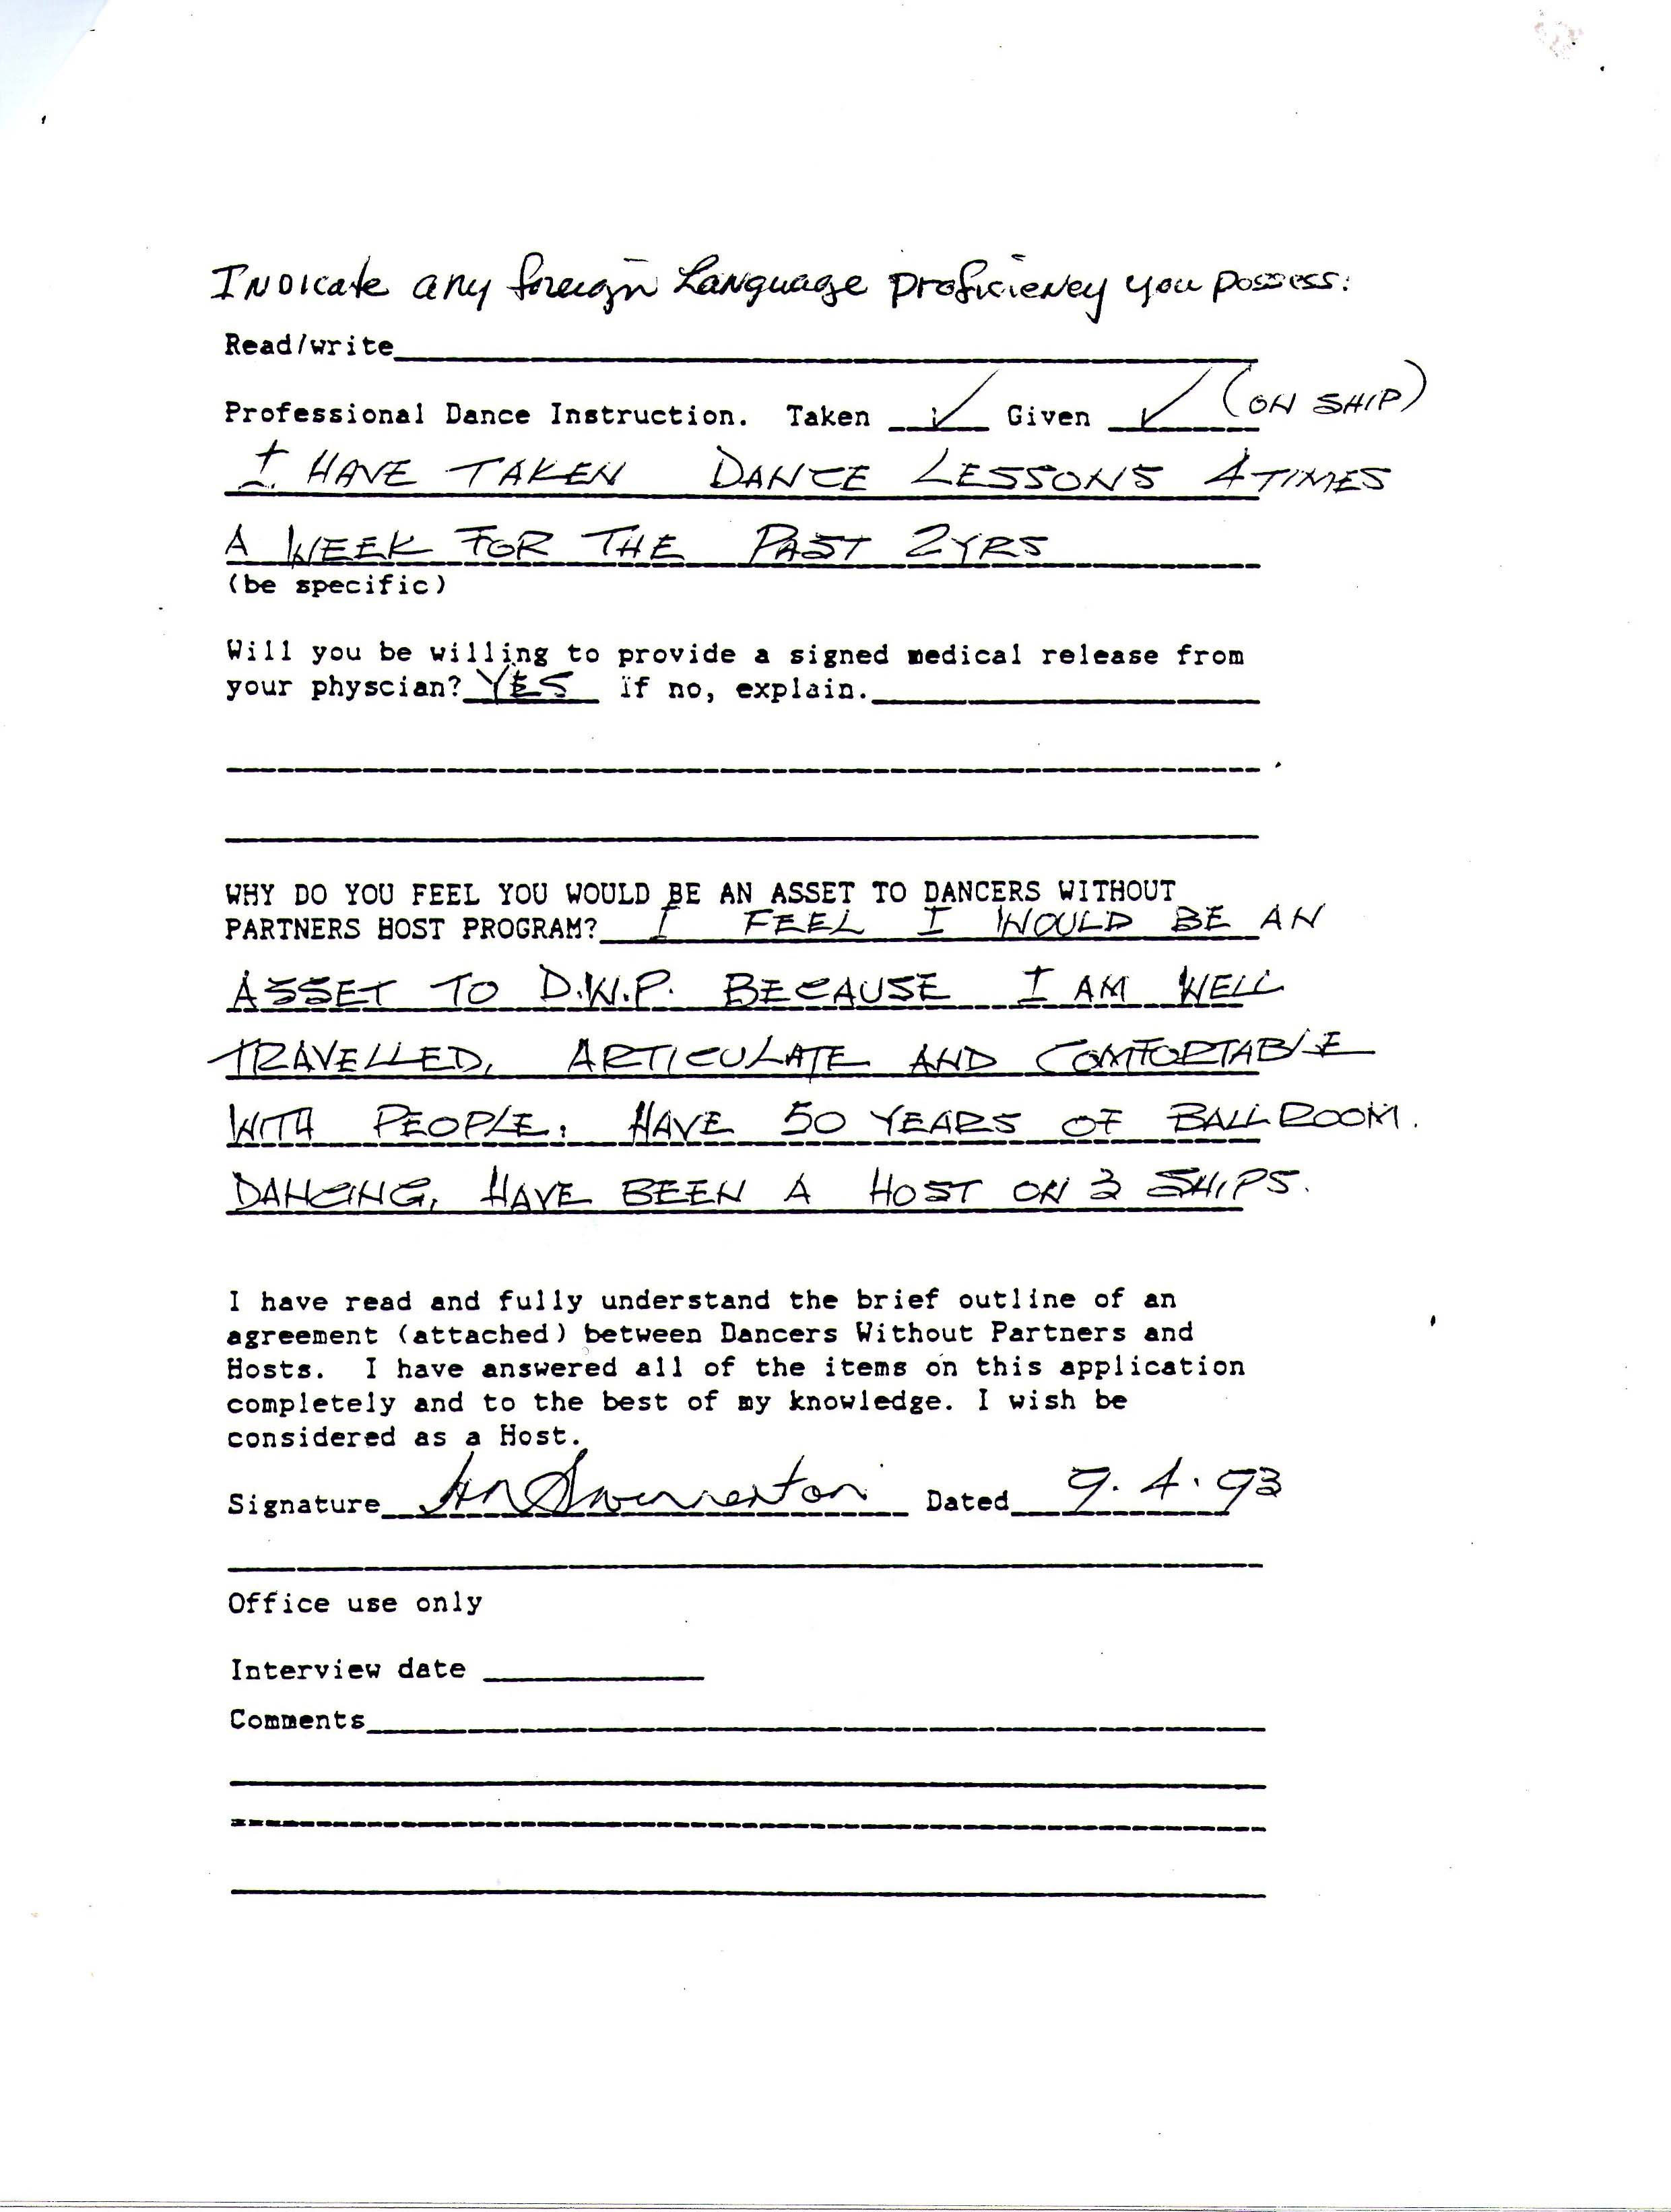 Indicate any foreign Language proficiency you possess:
Read/write
Professional Dance Instruction. Taken ✓ Given ✓ (ON SHIP)
I HAVE TAKEN DANCE LESSONS 4 TIMES
A WEEK FOR THE PAST 2YRS
(be specific)
Will you be willing to provide a signed medical release from
your physcian? YES if no, explain.
WHY DO YOU FEEL YOU WOULD BE AN ASSET TO DANCERS WITHOUT
PARTNERS HOST PROGRAM? I FEEL I WOULD BE AN
ASSET TO D.W.P. BECAUSE I AM WELL
TRAVELLED, ARTICULATE AND COMFORTABLE
WITH PEOPLE. HAVE 50 YEARS OF BALLROOM.
DANCING, HAVE BEEN A HOST ON 3 SHIPS.
I have read and fully understand the brief outline of an
agreement (attached) between Dancers Without Partners and
Hosts. I have answered all of the items on this application
completely and to the best of my knowledge. I wish be
considered as a Host.
Signature Dated 9.4.93
Office use only
Interview date
Comments